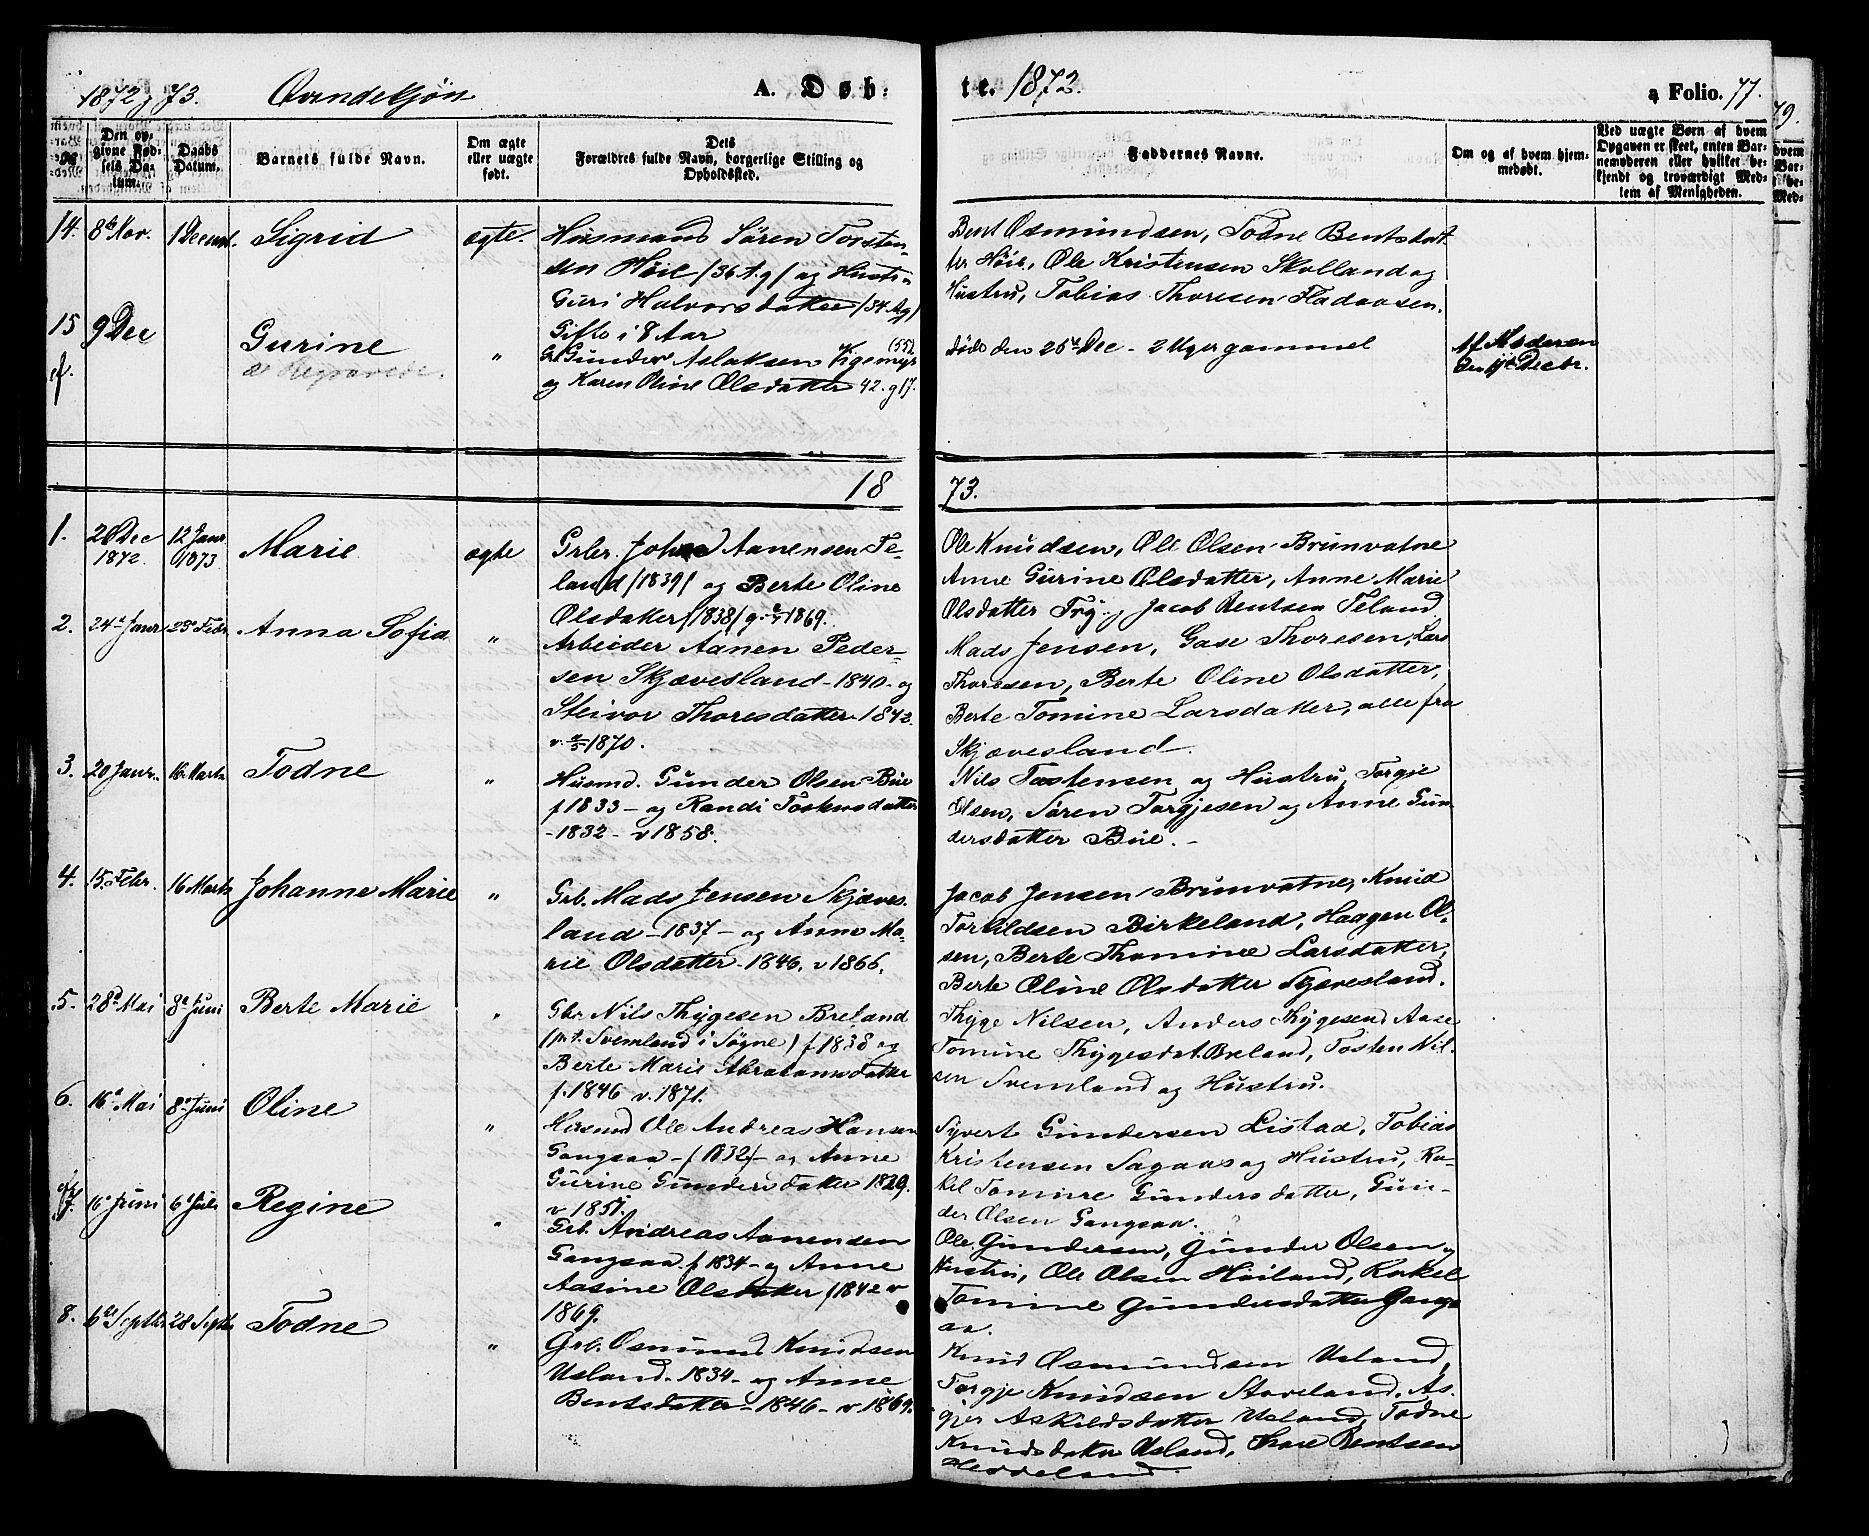 1872 & 73. Qvindekjøn A. Døb= te. 1872. a Folio. 77.
Den opgivne Fødsels Datum.
Daabs Datum.
Barnets fulde Navn.
Om ægte eller uægte født.
Dets Forældres fulde Navn, borgerlige Stilling og Opholdssted.
Faddernes Navne.
Om og af hvem hjemmedøbt.
Ved uægte Børn af hvem Opgaven er skeet, enten Barnemoderen eller hvilket bekjendt og troværdigt Medlem af Menigheden.
14. 8de Nov. 1 Decembr. Sigrid ægte.
Huusmand Søren Torsten-
sen Høie (36 A.g) og Hustru
Guri Halvorsdatter (34 A.g)
Gifte i 8 Aar
Bent Osmundsen, Todne Bentsdat-
ter Høie, Ole Kristensen Skolland og
Hustru, Tobias Thoresen Fladaasen.
15 9 Dec Gurine "
see Begravede.
Gunder Aslaksen Vigemyr (55)
og Karen Oline Olsdatter 42. g 17.
døde den 26de Dec - 2 Uger gammel
Af Moderen
den 11te Decbr.
18 73.
1. 20 Dec 1872. 12 Janr 1873 Marie ægte
Grbr. Johan Aanensen Fe-
land (1839) og Berte Oline
Olsdatter (1838) g. 1869.
Ole Knudsen, Ole Olsen Brunvatne
Anne Gurine Olsdatter, Anne Marie
Olsdatter Try, Jacob Bentsen Feland
2. 24de Janr 23de Febr Anna Sofia "
Arbeider Aanen Peder-
sen Skjævesland - 1840 - og
Steivor Thoresdatter 1843.
v. 1870.
Mads Jensen, Gase Thoresen, Lars
Thoresen, Berte Oline Olsdatter,
Berte Tomine Larsdatter, alle fra
Skjævesland.
3. 20 Janr. 16 Marts Todne "
Husmd. Gunder Olsen Bue
f 1833 - og Randi Tostensdatter
- 1832 - v 1858.
Nils Tostensen og Hustru, Torgje
Olsen, Søren Torgjesen og Anne Gun-
dersdatter Bue. -
4. 15. Febr. 16 Marts Johanne Marie "
Grb. Mads Jensen Skjæves-
land - 1837 - og Anne Ma-
rie Olsdatter - 1846. v 1866.
Jacob Jensen Brunvatne, Knud
Torkildsen Birkeland, Haagen Ol-
sen, Berte Thomine Larsdatter,
Berte Oline Olsdatter Skjævesland.
5. 28de Mai 8de Juni Berte Marie "
Gbr Nils Thygesen Breland
(p.t. Svemland i Søgne) f 1838 og
Berte Marie Abrahamsdatter
f. 1846 v. 1871.
Thyge Nilsen, Anders Thygesen, Aase
Tomine Thygesdat. Breland, Tosten Nil-
sen Svemland og Hustru.
6. 16de Mai 8de Juni Oline "
Husmd Ole Andreas Hansen
Gangsaa - f 1832 - og Anne
Gurine Gundersdatter 1829.
v 1851.
Syvert Gundersen Listad, Tobias
Kristensen Sagaas og Hustru, Ra-
kel Tomine Gundersdatter, Gun-
der Olsen Gangsaa.
7. 16de Juni 6de Juli Regine "
Grb. Andreas Aanensen
Gangsaa f 1834 - og Anne
Aasine Olsdatter f 1842 v
1869.
Ole Gundersen, Gunder Olsen og
Hustru, Ole Olsen Høiland, Rakel
Tomine Gundersdatter Gangs-
aa.
8. 6te Septbr 28 Septbr Todne "
Grb. Osmund Knudsen
Usland. 1834 - og Anne
Bentsdatter - 1846 - v 1869.
Knud Osmundsen Usland,
Torgje Knudsen Staveland, As-
gjer Askildsdatter Usland, Todne
Knudsdatter Usland, Tore Bentsen
Heddeland.